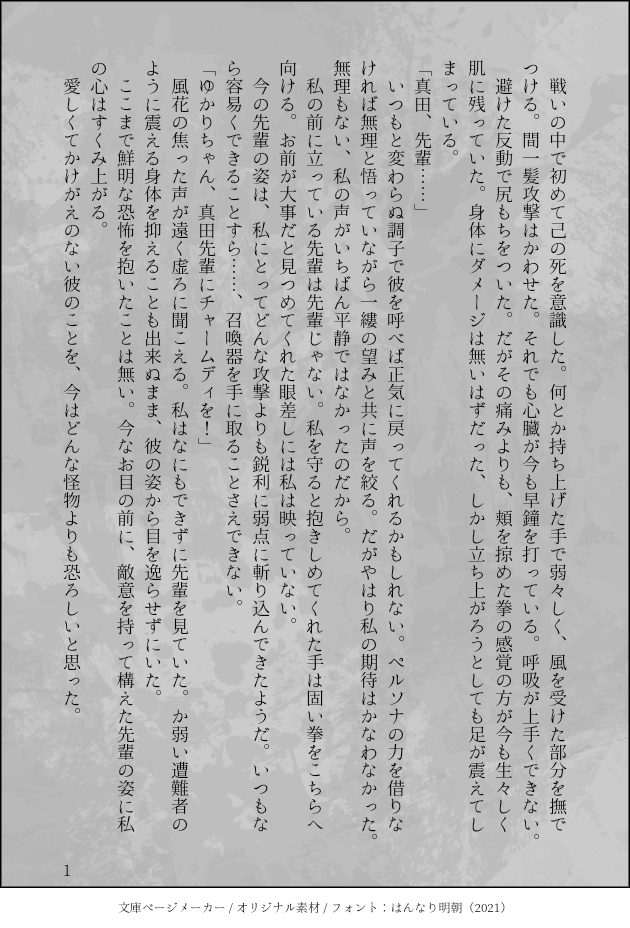 戦いの中で初めて己の死を意識した。何とか持ち上げた手で弱々しく、風を受けた部分を撫で
つける。間一髪攻撃はかわせた。それでも心臓が今も早鐘を打っている。呼吸が上手くできない。
避けた反動で尻もちをついた。だがその痛みよりも、頬を掠めた拳の感覚の方が今も生々しく
肌に残っていた。身体にダメージは無いはずだった、しかし立ち上がろうとしても足が震えてし
まっている。
「真田、先輩……」
いつもと変わらぬ調子で彼を呼べば正気に戻ってくれるかもしれない。ペルソナの力を借りな
ければ無理と悟っていながら一縷の望みと共に声を絞る。だがやはり私の期待はかなわなかった。
無理もない、私の声がいちばん平静ではなかったのだから。
私の前に立っている先輩は先輩じゃない。私を守ると抱きしめてくれた手は固い拳をこちらへ
向ける。お前が大事だと見つめてくれた眼差しには私は映っていない。
今の先輩の姿は、私にとってどんな攻撃よりも鋭利に弱点に斬り込んできたようだ。いつもな
ら容易くできることすら……、召喚器を手に取ることさえできない。
「ゆかりちゃん、真田先輩にチャームディを！」
風花の焦った声が遠く虚ろに聞こえる。私はなにもできずに先輩を見ていた。か弱い遭難者の
ように震える身体を抑えることも出来ぬまま、彼の姿から目を逸らせずにいた。
ここまで鮮明な恐怖を抱いたことは無い。今なお目の前に、敵意を持って構えた先輩の姿に私
の心はすくみ上がる。
愛しくてかけがえのない彼のことを、今はどんな怪物よりも恐ろしいと思った。
1
文庫ページメーカー / オリジナル素材 / フォント：はんなり明朝（2021）